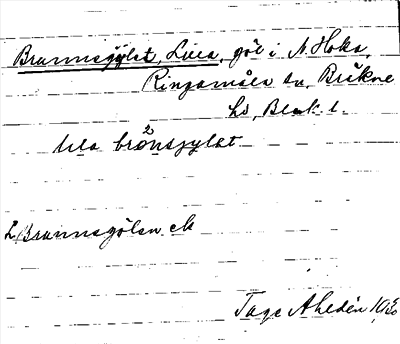 Brunnsgylet, Lilla, göl i N. Hoka,
Ringamåla sn, Bräkne
hd, Blek. l.
lilla brönsjylet
L. Brunnsgölen ek
Tage Ahldén 1930